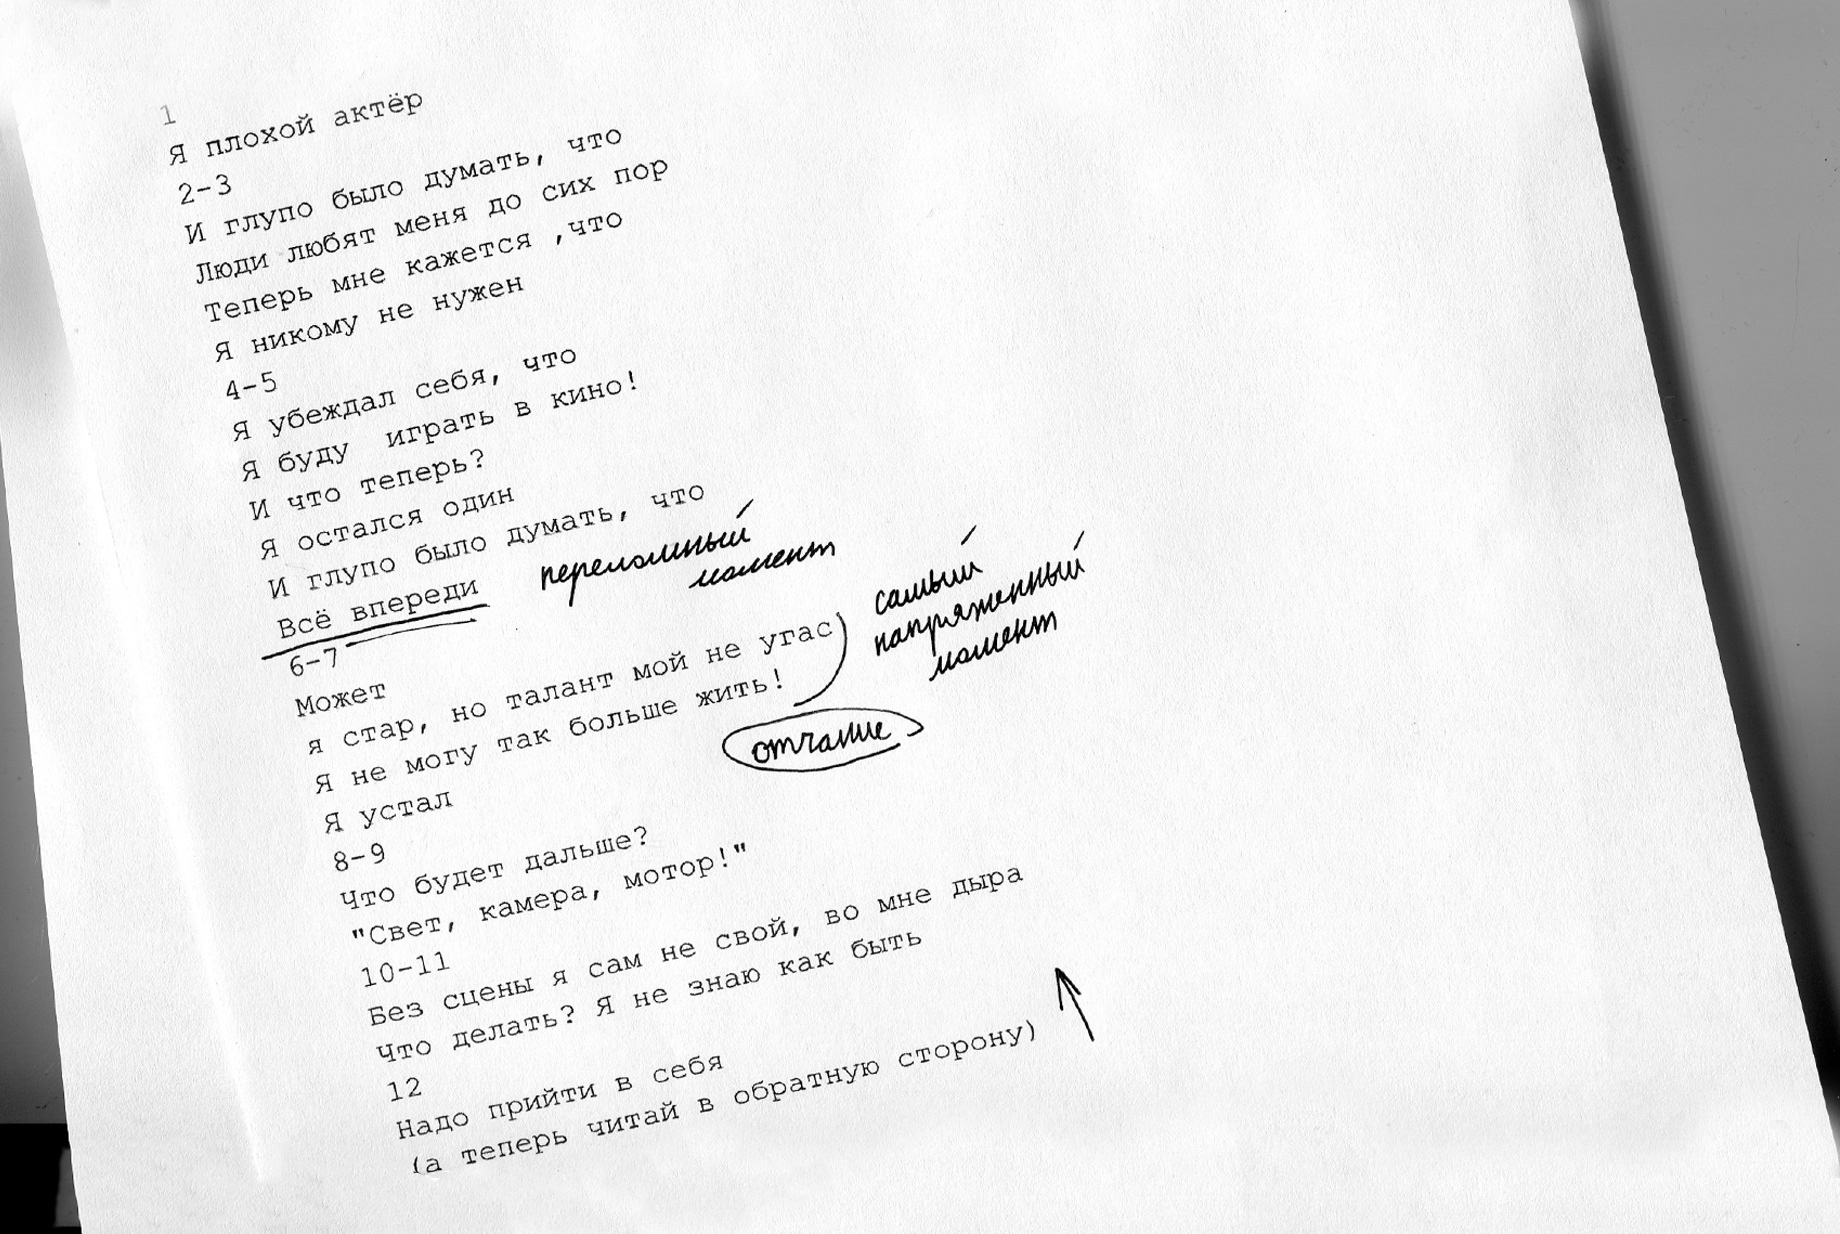 1
Я плохой актёр
2-3
И глупо было думать, что
Люди любят меня до сих пор
Теперь мне кажется ,что
Я никому не нужен
4-5
Я убеждал себя, что
Я буду  играть в кино!
И что теперь?
Я остался один
И глупо было думать, что
Всё впереди
переломный
момент
6-7
Может
я стар, но талант мой не угас
Я не могу так больше жить!
самый
напряженный
момент
отчаяние
Я устал
8-9
Что будет дальше?
"Свет, камера, мотор!"
10-11
Без сцены я сам не свой, во мне дыра
Что делать? Я не знаю как быть
12
Надо прийти в себя
(а теперь читай в обратную сторону)